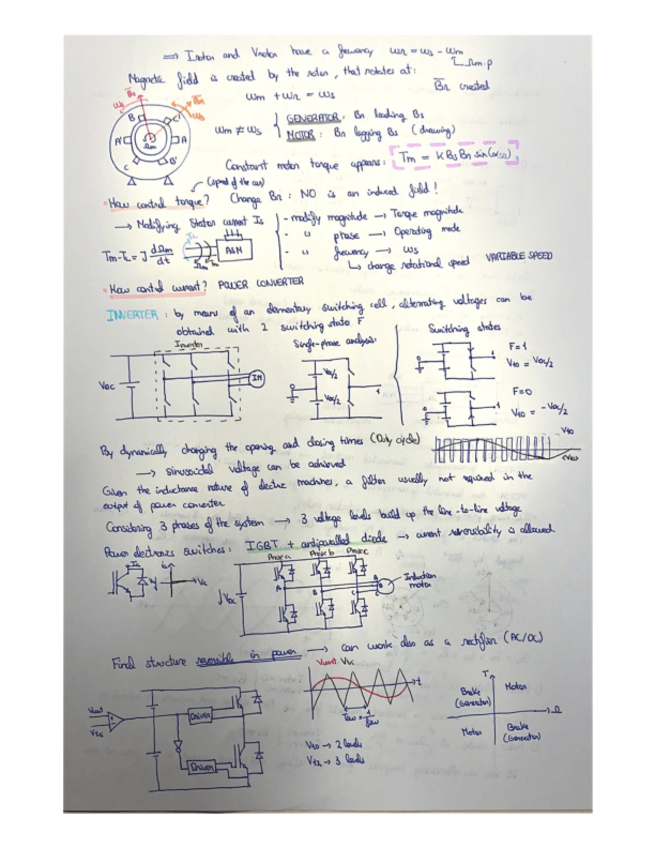 ⟹ Irotor and Vrotor have a frequency ωr = ωs - ωm
Ωm·p
Magnetic field is created by the rotor, that rotates at:
Br created
ωm + ωr = ωs
ωm ≠ ωs
GENERATOR: Br leading Bs
MOTOR: Br lagging Bs (drawing)
B
C'
A'
A
C
B'
Ωm
Constant motor torque appears: Tm = K Bs Br sin(αsr)
(speed of the car)
· How control torque? Change Br: NO is an induced field!
→ Modifying stator current Is
- modify magnitude → Torque magnitude
- " phase → Operating mode
- " frequency → ωs
↳ change rotational speed VARIABLE SPEED
Tm - TL = J dΩm/dt
Ωm
· How control current? POWER CONVERTER
INVERTER: by means of an elementary switching cell, alternating voltages can be
obtained with 2 switching state F
Inverter
Single-phase analysis:
Switching states
VDC
IM
VDC/2
VDC/2
0
1
F=1
V10 = VDC/2
F=0
V10 = -VDC/2
V10
By dynamically changing the opening and closing times (Duty cycle)
→ sinusoidal voltage can be achieved
Given the inductance nature of electric machines, a filter usually not required in the
output of power converter
Considering 3 phases of the system → 3 voltage levels build up the line-to-line voltage
Power electronics switches: IGBT + antiparalleled diode → current reversibility is allowed
Phase a Phase b Phase c
VDC
A
B
C
Induction
motor
Final structure reversible in power → can work also as a rectifier (AC/DC)
Vcont Vtri
t
Vcont
Vtri
DRIVER
DRIVER
V10 → 2 levels
V12 → 3 levels
T
Brake
(Generator)
Motor
Ω
Motor
Brake
(Generator)